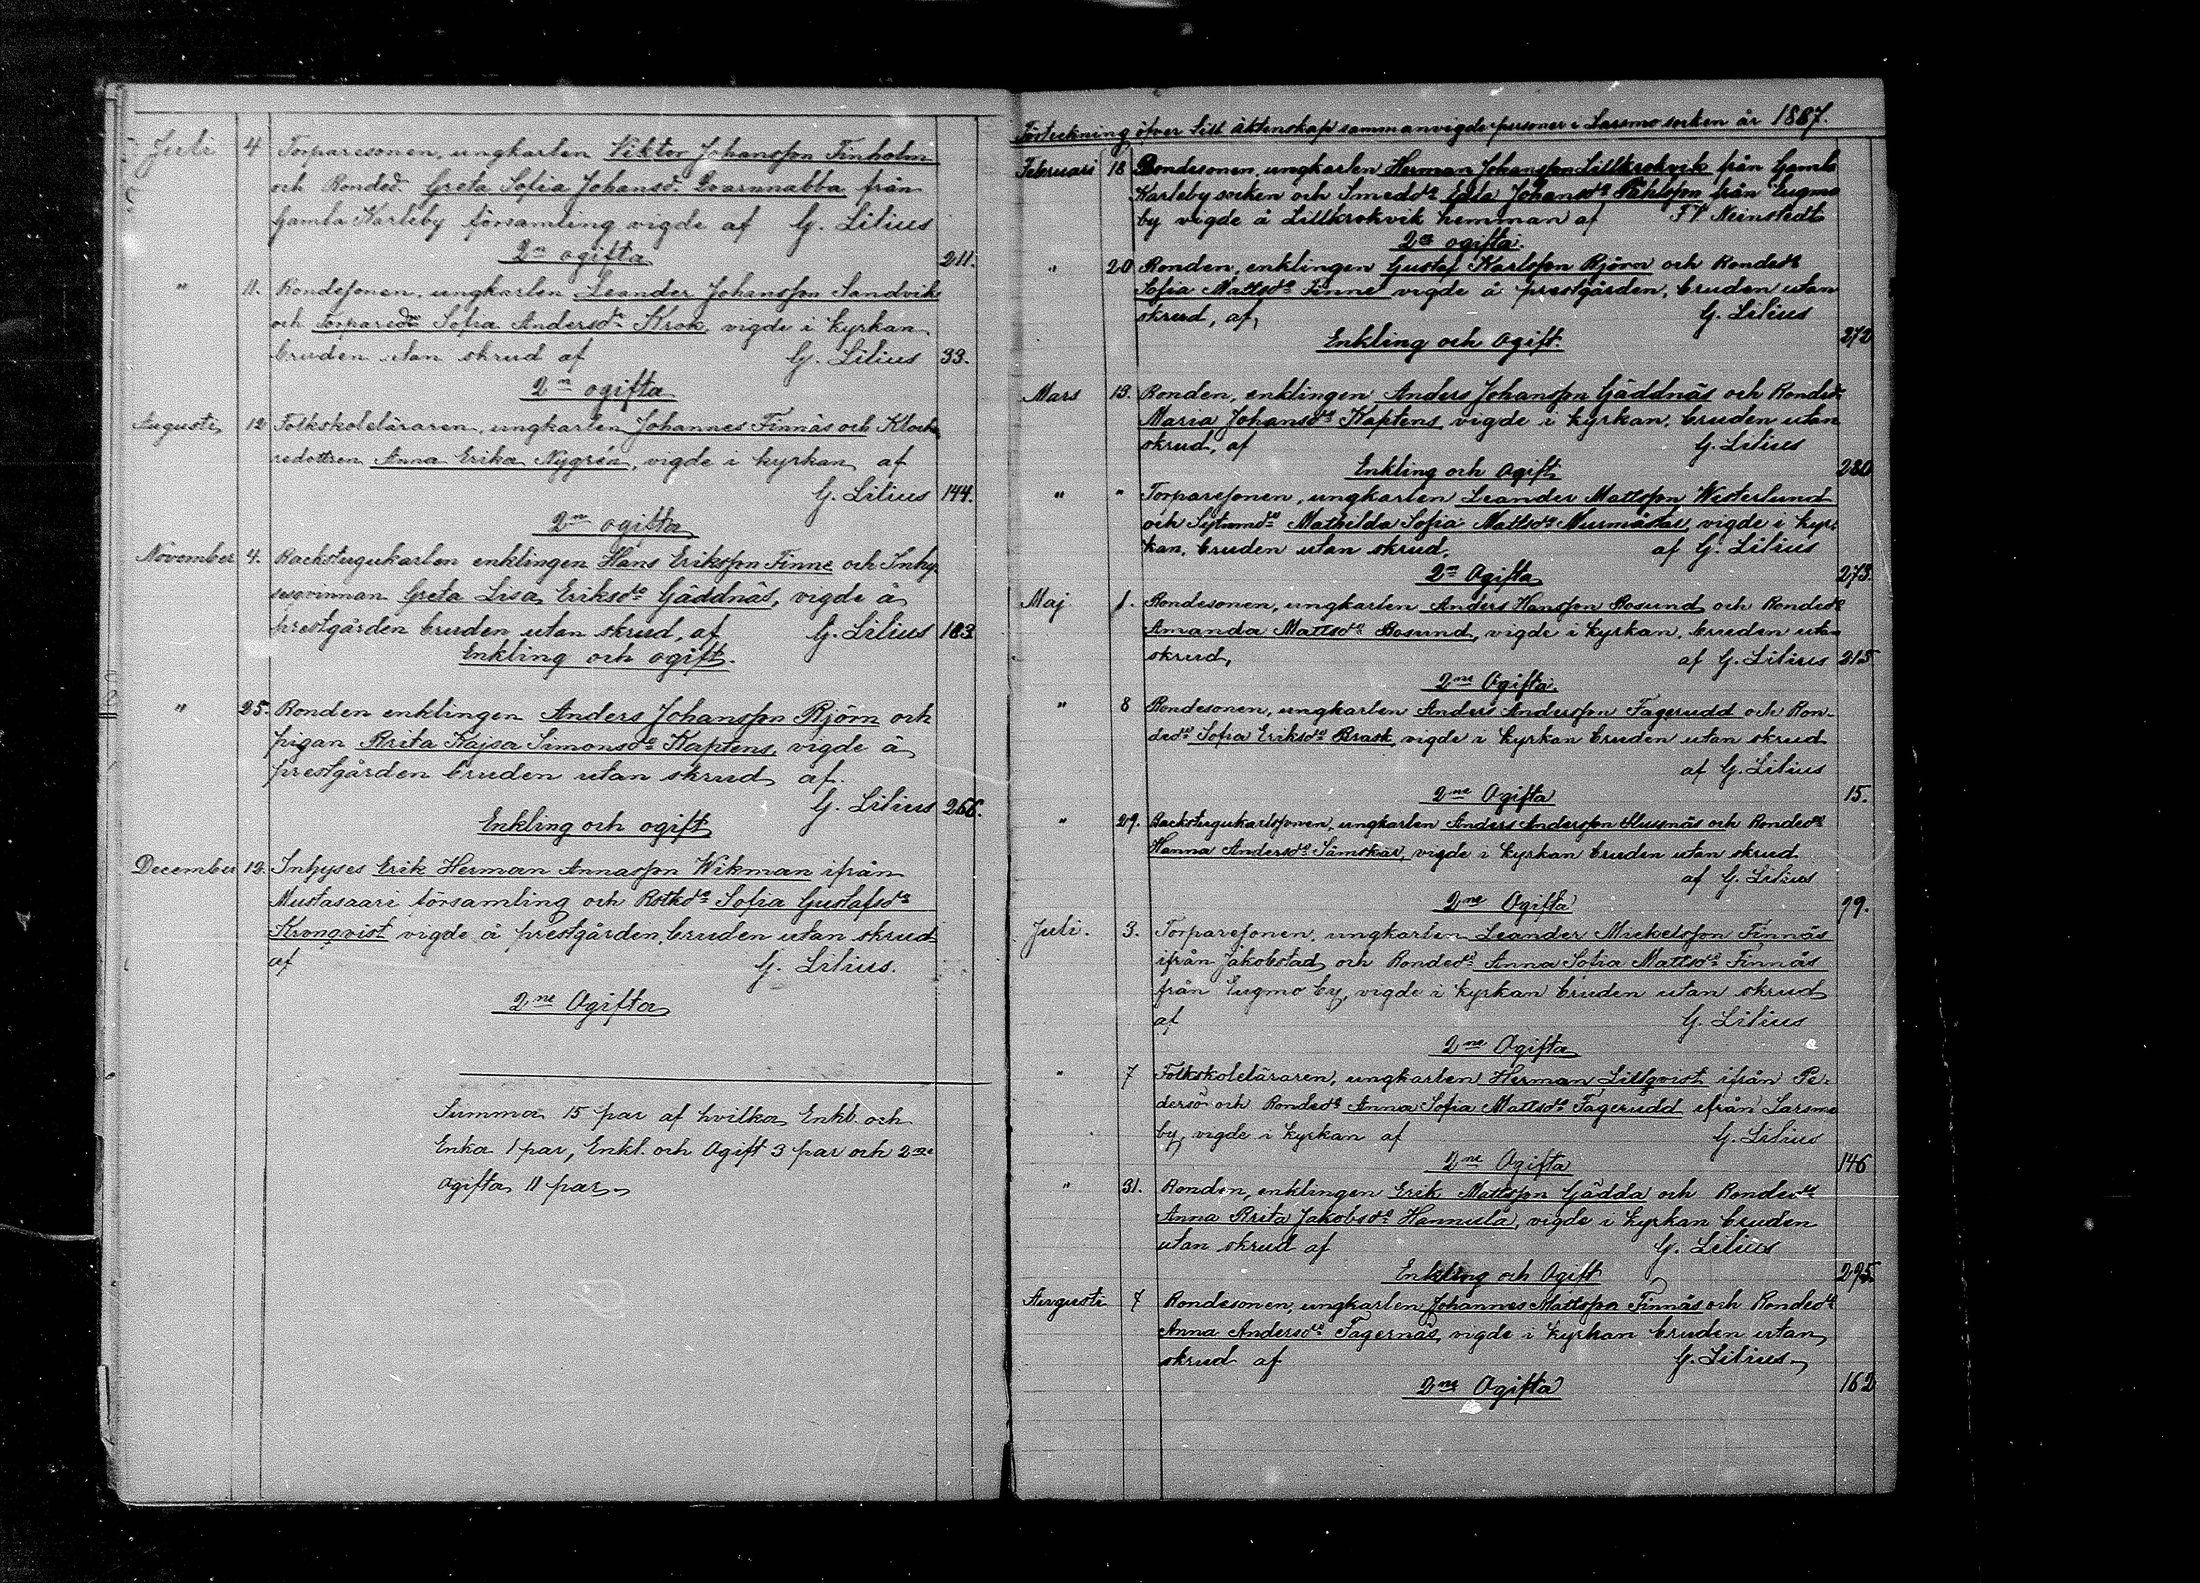 Juli 4 Torparesonen, ungkarlen Viktor Johansson Finholm
och Bonded. Greta Sofia Johansd. Qvarnnabba från
Gamla Karleby församling vigde af G. Lilius
2ne ogifta 211.
" 11. Bondesonen, ungkarlen Leander Johansson Sandvik
och torparedr Sofia Andersdr Krok, vigde i kyrkan
bruden utan skrud af G. Lilius 33.
2ne ogifta
Augusti 12 Folkskoleläraren, ungkarlen Johannes Finnäs och Klocka
redottren Anna Erika Nygrén, vigde i kyrkan af
G. Lilius 144.
2ne ogifta
November 4. Backstugukarlen enklingen Hans Eriksson Finne och Inhy-
sesqvinnan Greta Lisa Eriksdr Gäddnäs, vigde å
prestgården bruden utan skrud, af G. Lilius 183
Enkling och ogift.
" 25. Bonden enklingen Anders Johansson Björn och
pigan Brita Kajsa Simonsdr Kaptens, vigde å
prestgården bruden utan skrud af.
G. Lilius 266.
Enkling och ogift
December 12. Inhyses Erik Herman Annasson Wikman ifrån
Mustasaari församling och Sofia Gustafsdr
Kronqvist vigde å prestgården, bruden utan skrud
af G. Lilius.
2ne Ogifta
Summa 15 par af hvilka Enkl. och
Enka 1 par, Enkl. och Ogift 3 par och 2ne
ogifta 11 par.
Förteckning öfver till äktenskap sammanvigde personer i Larsmo socken år 1887.
Februari 18 Bondesonen, ungkarlen Herman Johansson Lillkrokvik från Gamla
Karleby socken och Smeddr Edla Johansdr Påhlsson från Eugmo
by vigde å Lillkrokvik hemman af Neinstedt
2ne ogifta.
" 20 Bonden, enklingen Gustaf Karlsson Björn och Bondedr
Sofia Mattsdr Finne vigde å prestgården, bruden utan
skrud, af, G. Lilius
Enkling och Ogift. 272
Mars 13. Bonden, enklingen Anders Johansson Gäddnäs och Bondedr
Maria Johansdr Kaptens vigde i kyrkan, bruden utan
skrud, af G. Lilius
Enkling och Ogift 280
" " Torparesonen, ungkarlen Leander Mattsson Westerlund
och Sytnmdr Mathilda Sofia Mattsdr Murmästar, vigde i kyr-
kan, bruden utan skrud, af G. Lilius
2ne Ogifta 273.
Maj 1. Bondesonen, ungkarlen Anders Hansson Bosund och Bondedr
Amanda Mattsdr Bosund, vigde i kyrkan, bruden utan
skrud, af G. Lilius 215
2ne Ogifta.
" 8 Bondesonen, ungkarlen Anders Andersson Fagerudd och Bon-
dedr Sofia Eriksdr Brask, vigde i kyrkan bruden utan skrud
af G. Lilius
2ne Ogifta 15.
" 29. Backstugukarlsonen, ungkarlen Anders Andersson Slussnäs och Bondedr
Hanna Andersdr Sämskar, vigde i kyrkan bruden utan skrud
af G. Lilius
2ne Ogifta 99.
Juli. 3. Torparesonen, ungkarlen Leander Mickelsson Finnäs
ifrån Jakobstad och Bondedr Anna Sofia Mattsdr Finnäs
från Eugmo by, vigde i kyrkan bruden utan skrud
af G. Lilius
2ne Ogifta
" 7 Folkskoleläraren, ungkarlen Herman Lillqvist ifrån Pe-
dersö och Bondedr Anna Sofia Mattsdr Fagerudd ifrån Larsmo
by, vigde i kyrkan af G. Lilius
2ne Ogifta 146
" 31. Bonden, enklingen Erik Mattsson Gädda och Bondedr
Anna Brita Jakobsdr Hannula, vigde i kyrkan bruden
utan skrud af G. Lilius
Enkling och Ogift 295
Augusti 7 Bondesonen, ungkarlen Johannes Mattsson Finnäs och Bondedr
Anna Andersdr Fagernäs, vigde i kyrkan bruden utan
skrud af G. Lilius.
2ne Ogifta 162